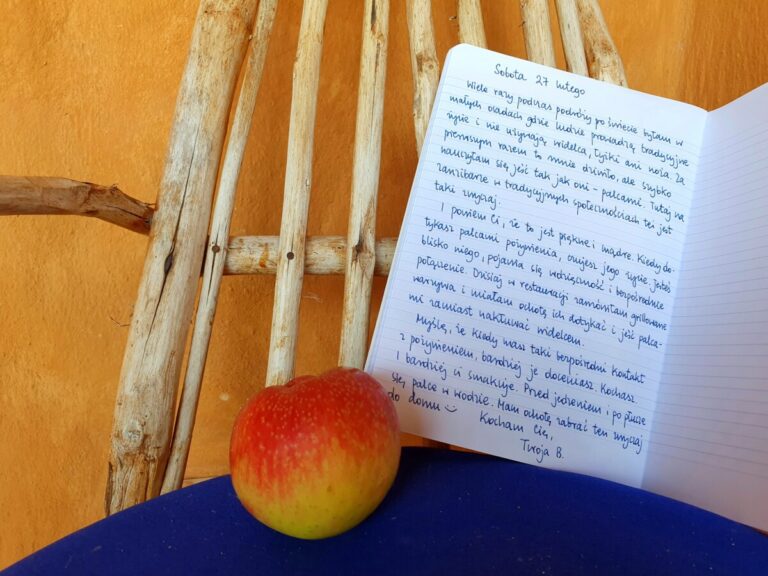 Sobota 27 lutego
Wiele razy podczas podróży po świecie byłam w
małych osadach gdzie ludzie prowadzą tradycyjne
życie i nie używają widelca, łyżki ani noża. Za
pierwszym razem to mnie dziwiło, ale szybko
nauczyłam się jeść tak jak oni - palcami. Tutaj na
Zanzibarze w tradycyjnych społecznościach też jest
taki zwyczaj.
I powiem Ci, że to jest piękne i mądre. Kiedy do-
tykasz palcami pożywienia, czujesz jego życie. Jesteś
blisko niego, pojawia się wdzięczność i bezpośrednie
połączenie. Dzisiaj w restauracji zamówiłam grillowane
warzywa i miałam ochotę ich dotykać i jeść palca-
mi zamiast nakłuwać widelcem.
Myślę, że kiedy masz taki bezpośredni kontakt
z pożywieniem, bardziej je doceniasz. Kochasz.
I bardziej ci smakuje. Przed jedzeniem i po płucze
się palce w wodzie. Mam ochotę zabrać ten zwyczaj
do domu
Kocham Cię,
Twoja B.